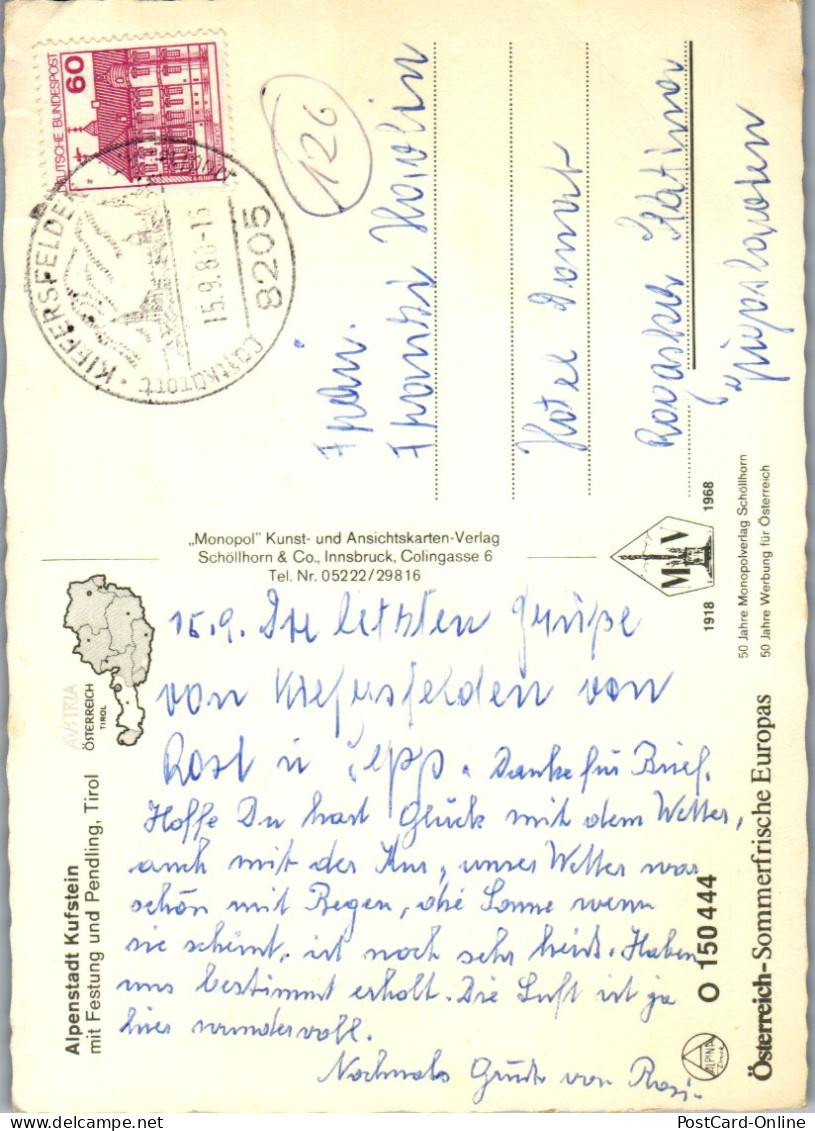 60
DEUTSCHE BUNDESPOST
KIEFERSFELDEN
Luftkurort
15.9.80-16
8205
126
Frau.
Hotel Donat
Rogaška Slatina
Jugoslavien
„Monopol" Kunst- und Ansichtskarten-Verlag
Schöllhorn & Co., Innsbruck, Colingasse 6
Tel. Nr. 05222/29816
M V
1918 1968
50 Jahre Monopolverlag Schöllhorn
50 Jahre Werbung für Österreich
AVSTRIA
ÖSTERREICH
TIROL
Alpenstadt Kufstein
mit Festung und Pendling, Tirol
15.9. Die letzten Grüße
von Kiefersfelden von
Rosl u Sepp. Danke für Brief.
Hoffe Du hast Glück mit dem Wetter,
auch mit der Kur, unser Wetter war
schön mit Regen, die Sonne wenn
sie scheint, ist noch sehr heiß. Haben
uns bestimmt erholt. Die Luft ist ja
hier wundervoll.
Nochmals Grüße von Rosi.
ALPINA
O 150 444
Österreich-Sommerfrische Europas
PostCard-Online PostCard-Online